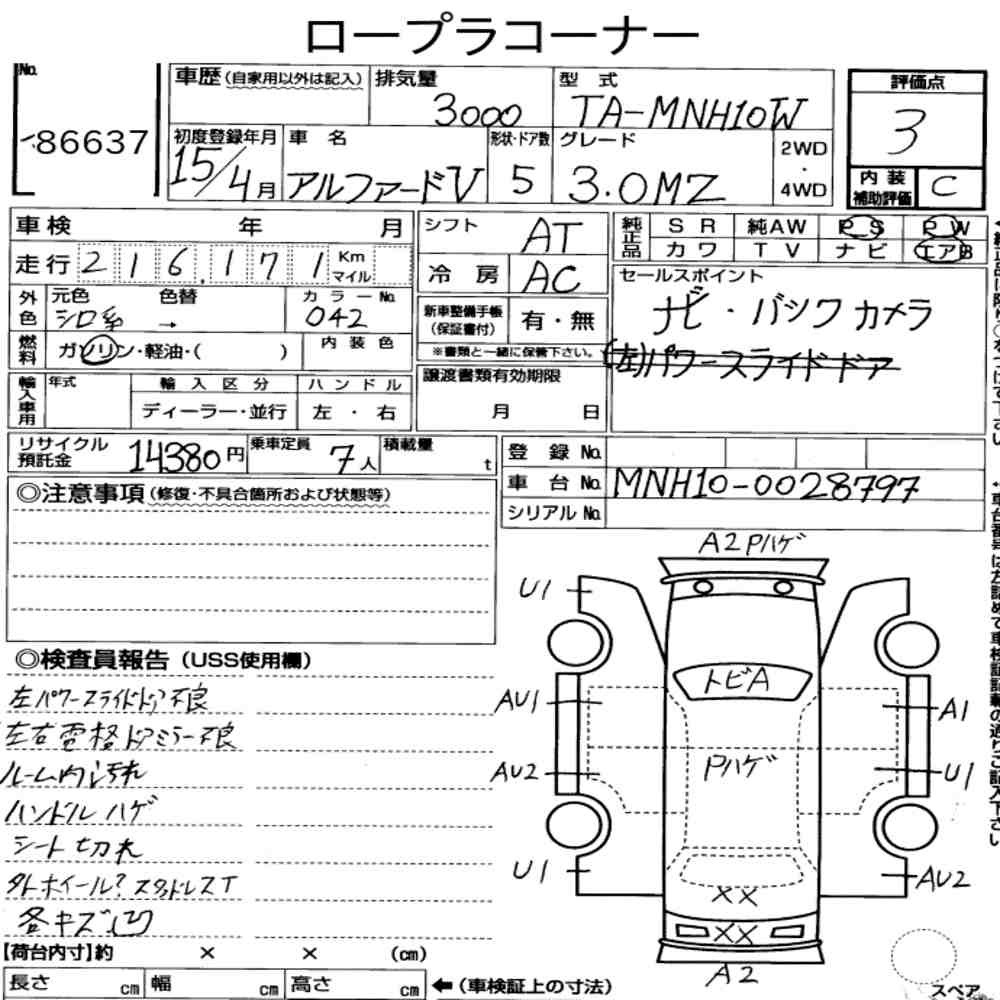 ロープラコーナー
No.
86637
車歴(自家用以外は記入)
排気量
3000
型式
TA-MNH10W
評価点
3
初度登録年月
15/4月
車名
アルファードV
形状・ドア数
5
グレード
3.0MZ
2WD
・
4WD
内装
補助評価
C
車検 年 月
走行 216,171 Km マイル
シフト
AT
冷房
AC
純正品
SR 純AW PS PW
カワ TV ナビ エアB
セールスポイント
ナビ・バックカメラ
(左)パワースライドドア
外色
元色 色替
シロ系 →
カラーNo.
042
燃料
ガソリン・軽油・( )
内装色
新車整備手帳
(保証書付)
有・無
※書類と一緒に保管下さい。
輸入車用
年式
輸入区分
ディーラー・並行
ハンドル
左・右
譲渡書類有効期限
月 日
リサイクル
預託金
14380円
乗車定員
7人
積載量
t
登録No.
車台No.
MNH10-0028797
シリアルNo.
◎注意事項(修復・不具合箇所および状態等)
◎検査員報告(USS使用欄)
左パワースライドドア不良
左右電格ドアミラー不良
ルーム内汚れ
ハンドルハゲ
シート切れ
外ホイール?スタッドレスT
各キズ凹
A2Pハゲ
U1
トビA
AU1
A1
Pハゲ
AU2
U1
U1
AU2
××
××
A2
スペア
【荷台内寸】約 × × (cm)
長さ cm 幅 cm 高さ cm ←(車検証上の寸法)